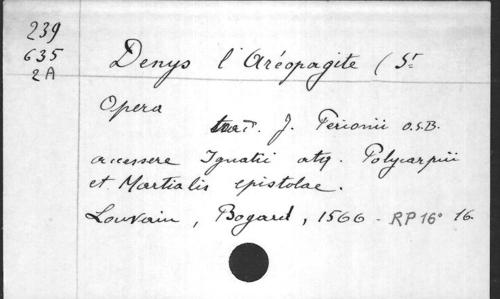 239
635
2A
Denys l'Aréopagite (St
Opera
trad. J. Perionii O.S.B.
accessere Ignatii atq. Polycarpii
et Martialis epistolae.
Louvain, Bogard, 1566 - RP 16° 16.